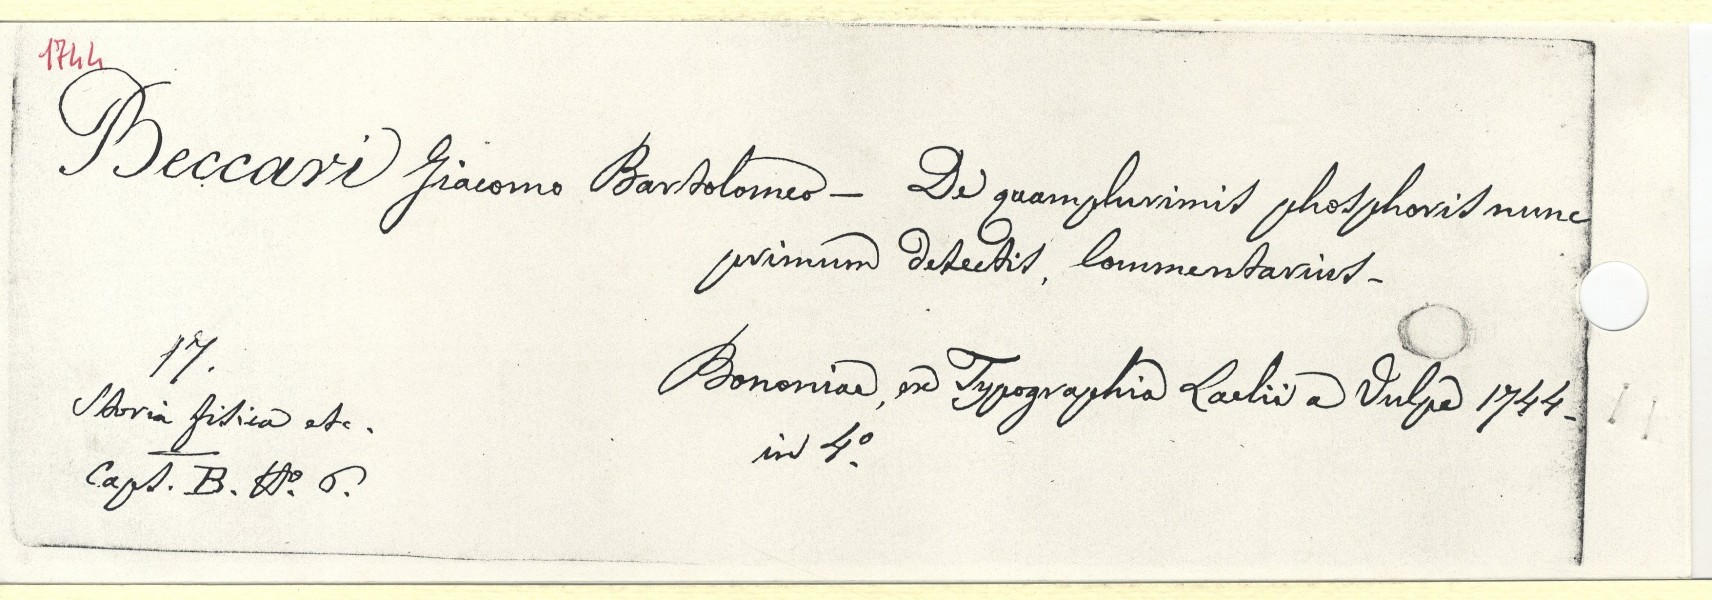 1744
Beccari Giacomo Bartolomeo — De quampluribus phosphoris nunc
primum detectis, Commentarius –
Bononiae, ex Typographia Laelii a Vulpe 1744 –
in 4º.
17.
Storia fisica etc.
Capt. B. Nº. 6.